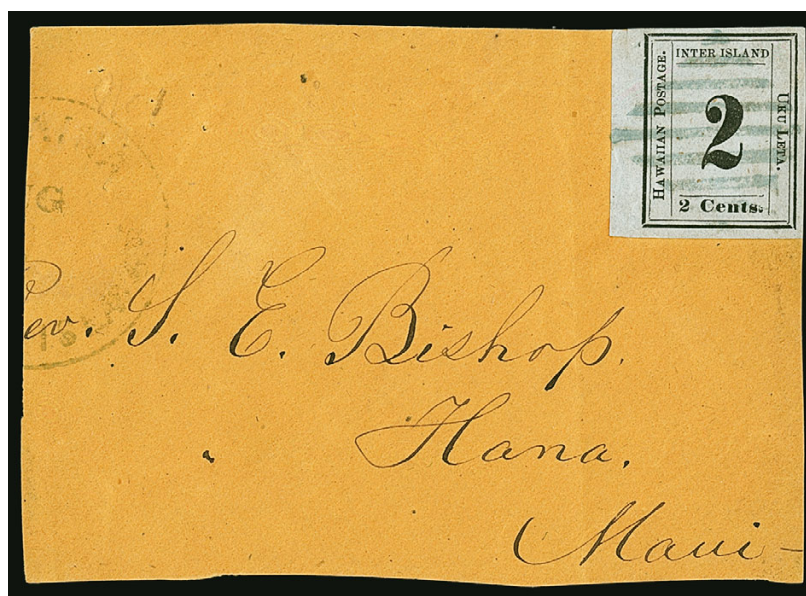 INTER ISLAND
HAWAIIAN POSTAGE.
2
UKU LETA.
2 Cents.
S. E. Bishop.
Hana.
Maui-